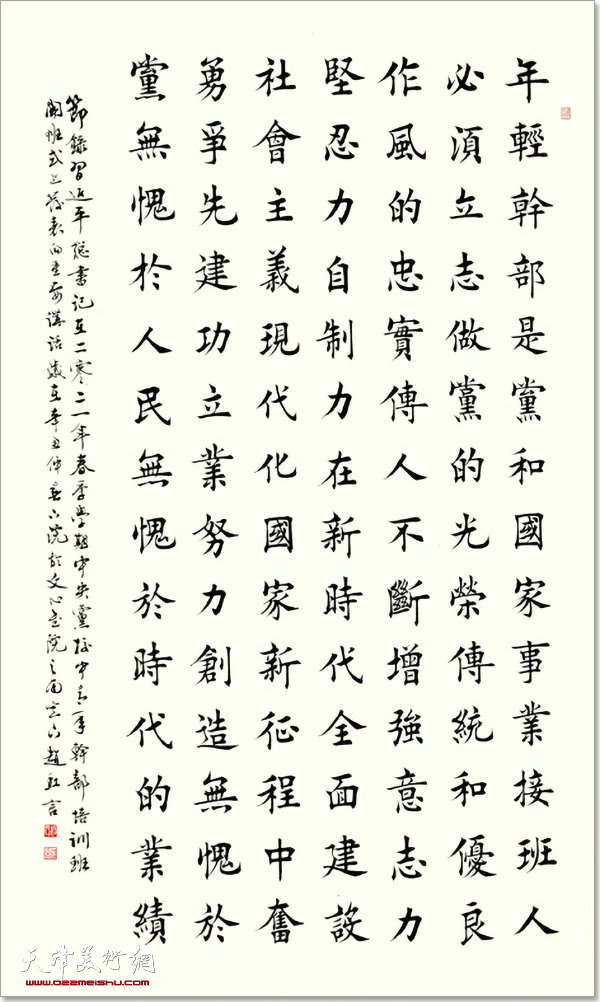 年輕幹部是黨和國家事業接班人
必須立志做黨的光榮傳統和優良
作風的忠實傳人不斷增強意志力
堅忍力自制力在新時代全面建設
社會主義現代化國家新征程中奮
勇爭先建功立業努力創造無愧於
黨無愧於人民無愧於時代的業績
節錄習近平總書記在二零二一年春季學期中央黨校中青年幹部培訓班
開班式上發表的重要講話歲在辛丑仲春 於文心書院之南窗 趙紅言
天津美術網
www.022meishu.com